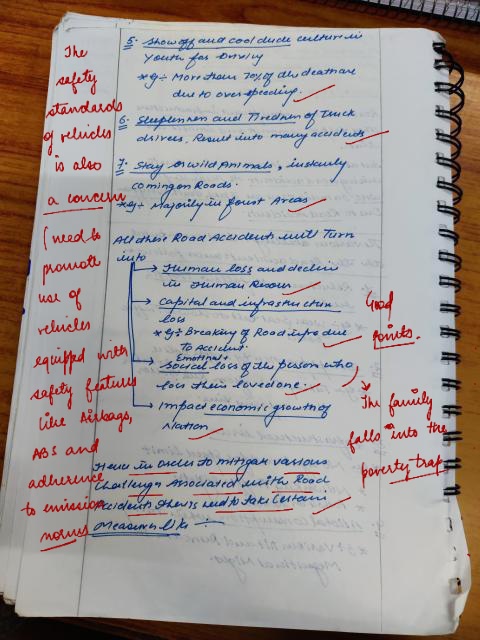 The
safety
standards
of vehicles
is also
a concern
(need to
promote
use of
vehicles
equipped with
safety features
like Airbags,
ABS and
adherence
to emission
norms
5. Show off and cool dude culture in
youth for Driving
*Eg:- More than 70% of the death are
due to over speeding.
6. Sleepleness and Tiredness of Truck
drivers, Result into many accidents
7. Stay or wild Animals, instantly
coming on Roads.
*Eg:- Majorly in forest Areas
All these Road Accidents will Turn
into
→ Human loss and decline
in Human Resour
→ Capital and infrastructure
loss
*Eg:- Breaking of Road infra due
To Accident.
Emotional +
→ Social loss of the person who
loss their loved one.
→ Impact economic growth of
Nation
Good
points.
→ The family
falls into the
poverty trap
Here in order to mitigate various
challenges Associated with Road
Accidents others need to take certain
measures like :-